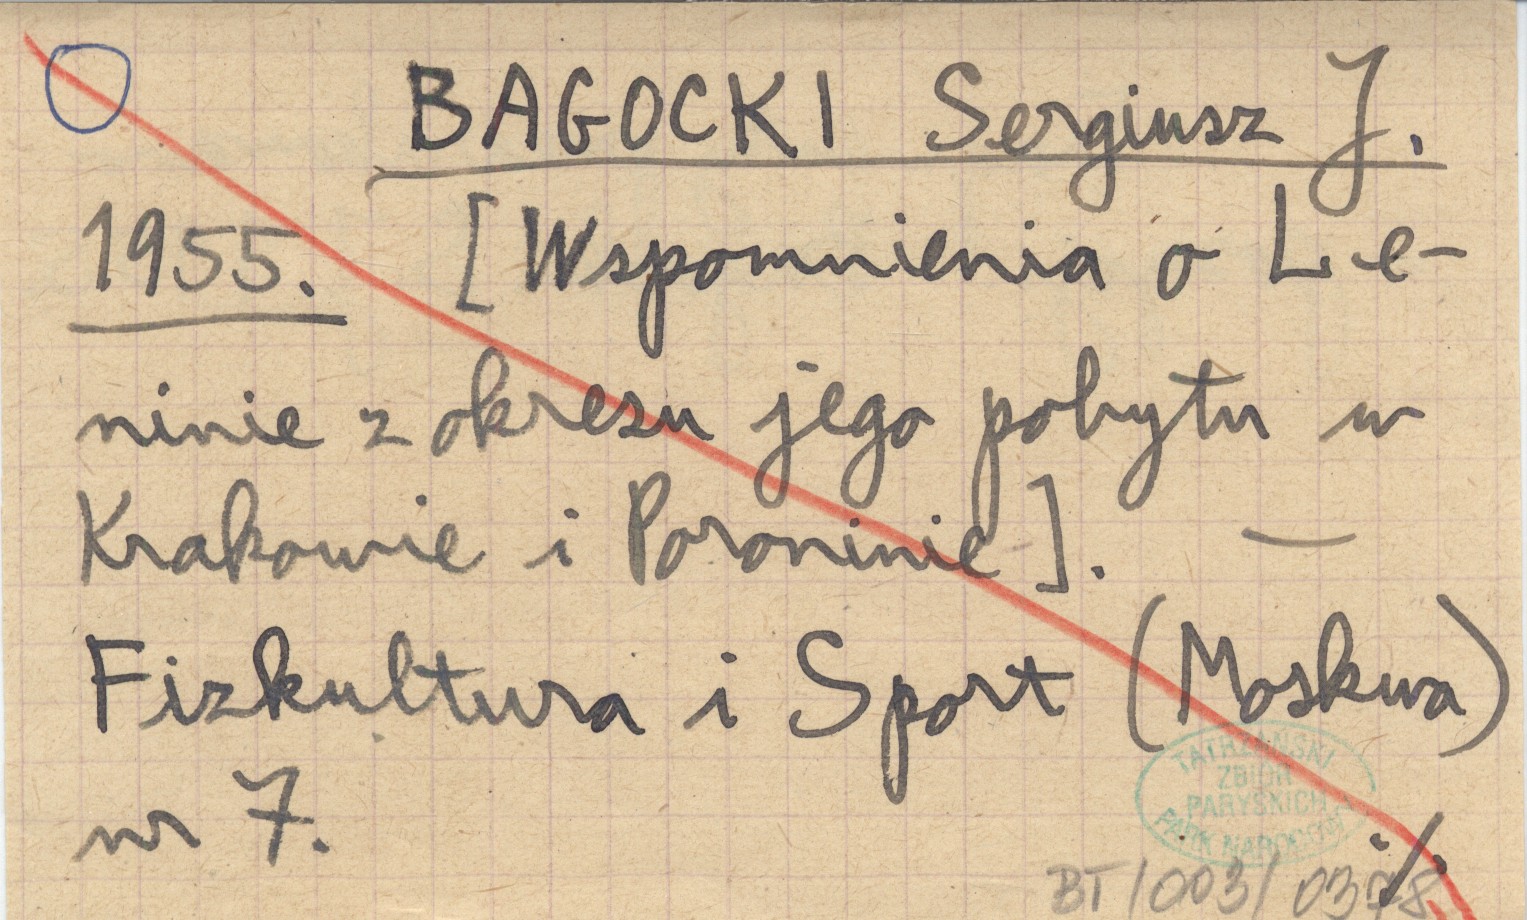 BAGOCKI Sergiusz J.
1955. [Wspomnienia o Le-
ninie z okresu jego pobytu w
Krakowie i Poroninie]. —
Fizkultura i Sport (Moskwa)
nr 7.
TATRZAŃSKI
ZBIÓR
PARYSKICH
PARK NARODOWY
BT/003/03
·/.